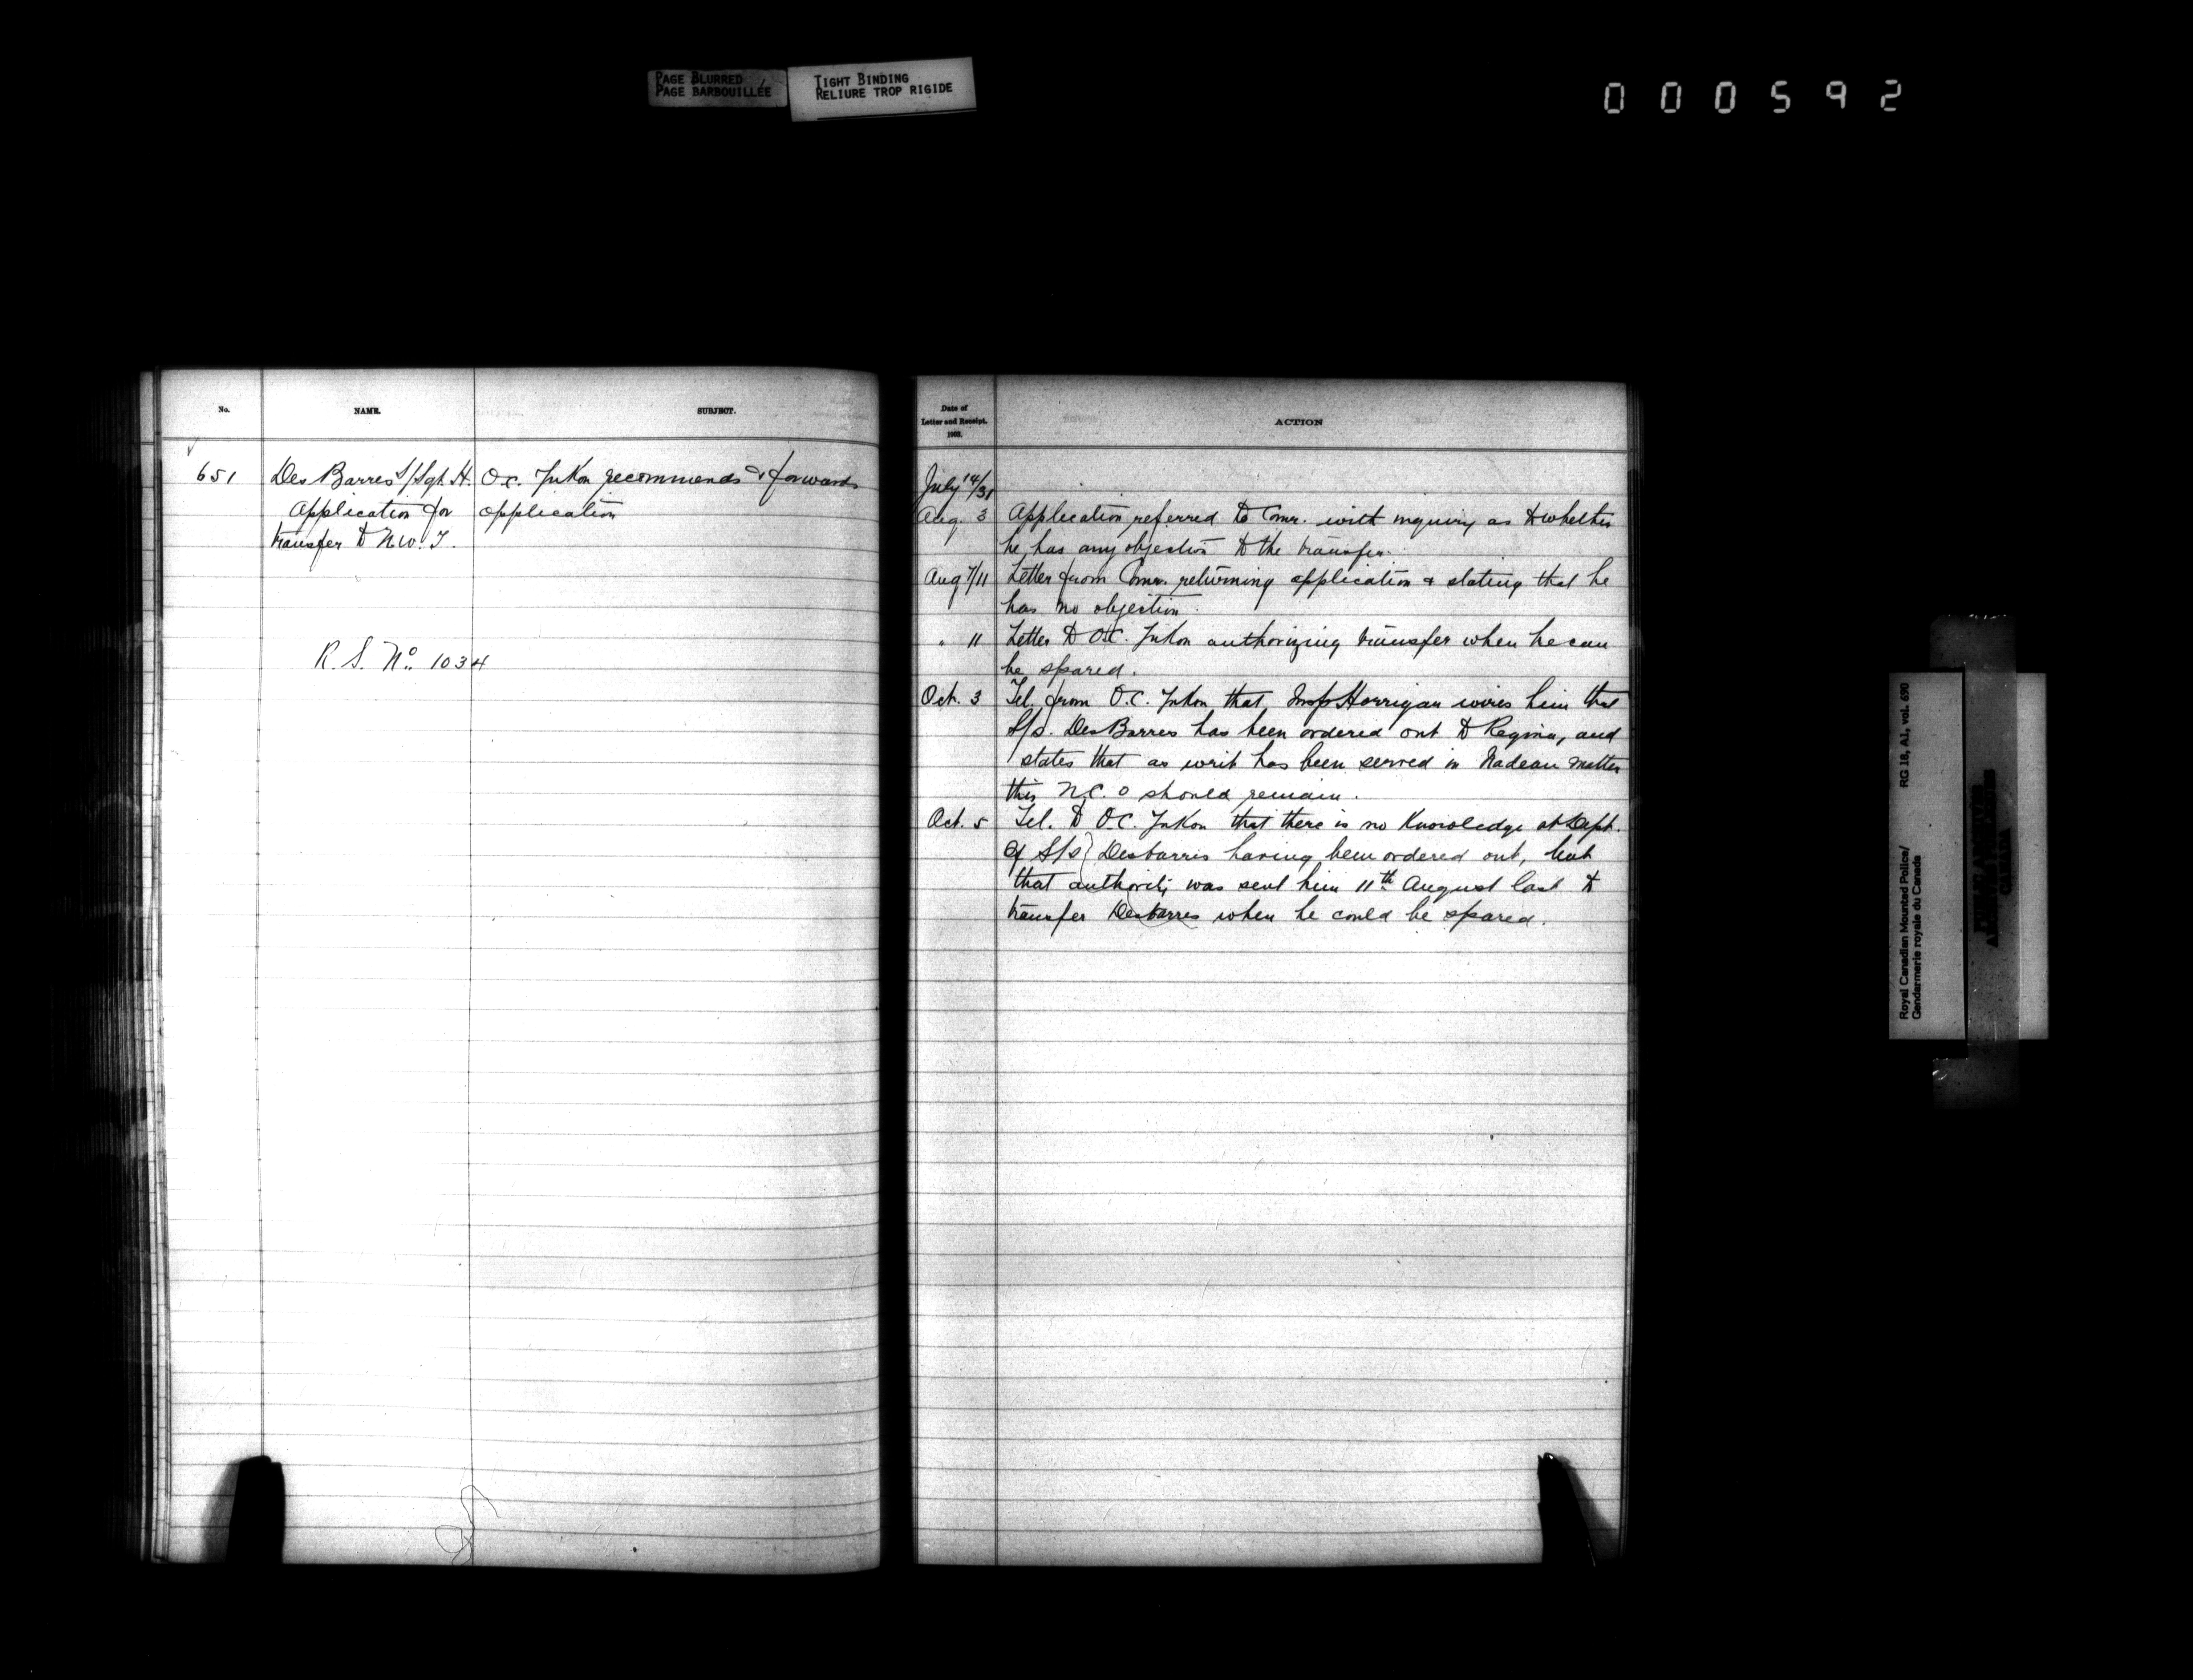 PAGE BLURRED
PAGE BARBOUILLÉE
TIGHT BINDING
RELIURE TROP RIGIDE
000592
No.
NAME.
SUBJECT.
651
Des Barres S/Sgt. H.
Application for
transfer to N.W.T.
O.C. Yukon recommends & forwards
application
R.S. No. 1034
Date of
Letter and Receipt.
1903.
ACTION
July 14/31
Aug. 3 Application referred to Comr. with inquiry as to whether
he has any objection to the transfer.
Aug 7/11 Letter from Comr. returning application & stating that he
has no objection.
" 11 Letter to O.C. Yukon authorizing transfer when he can
be spared.
Oct. 3 Tel. from O.C. Yukon that Insp Horrigan wires him that
S/S. DesBarres has been ordered out to Regina, and
states that as writ has been served in Nadeau matter
this N.C.O should remain.
Oct. 5 Tel. to O.C. Yukon that there is no knowledge at Dept.
of S/S Desbarris having been ordered out, but
that authority was sent him 11th August last to
transfer Desbarres when he could be spared.
Royal Canadian Mounted Police/ RG 18, A1, vol. 690
Gendarmerie royale du Canada
CANADA